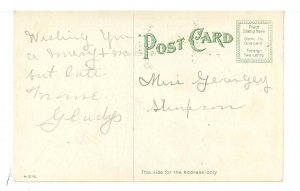 Wishing You
a
but late
from
Gladys
POST CARD
Place
Stamp Here
Domestic
One cent
Foreign
Two cents
Miss Georgey
Simpson
This side for the Address only